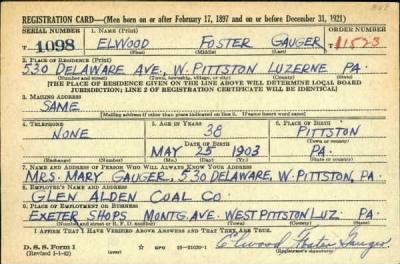 REGISTRATION CARD—(Men born on or after February 17, 1897 and on or before December 31, 1921)
SERIAL NUMBER 1. NAME (Print) ORDER NUMBER
T 1098 ELWOOD FOSTER GAUGER T 11523
(First) (Middle) (Last)
2. PLACE OF RESIDENCE (Print)
530 DELAWARE AVE., W. PITTSTON LUZERNE PA.
(Number and street) (Town, township, village, or city) (County) (State)
[THE PLACE OF RESIDENCE GIVEN ON THE LINE ABOVE WILL DETERMINE LOCAL BOARD
JURISDICTION; LINE 2 OF REGISTRATION CERTIFICATE WILL BE IDENTICAL]
3. MAILING ADDRESS
SAME
[Mailing address if other than place indicated on line 2. If same insert word same]
4. TELEPHONE 5. AGE IN YEARS 6. PLACE OF BIRTH
NONE 38 PITTSTON
DATE OF BIRTH (Town or county)
MAY 25 1903 PA.
(Exchange) (Number) (Mo.) (Day) (Yr.) (State or country)
7. NAME AND ADDRESS OF PERSON WHO WILL ALWAYS KNOW YOUR ADDRESS
MRS. MARY GAUGER, 530 DELAWARE, W. PITTSTON, PA.
8. EMPLOYER'S NAME AND ADDRESS
GLEN ALDEN COAL CO.
9. PLACE OF EMPLOYMENT OR BUSINESS
EXETER SHOPS MONTG. AVE. WEST PITTSTON LUZ. PA.
(Number and street or R. F. D. number) (Town) (County) (State)
I AFFIRM THAT I HAVE VERIFIED ABOVE ANSWERS AND THAT THEY ARE TRUE.
D. S. S. Form 1
(Revised 1-1-42) GPO Elwood Foster Gauger
(Registrant's signature)